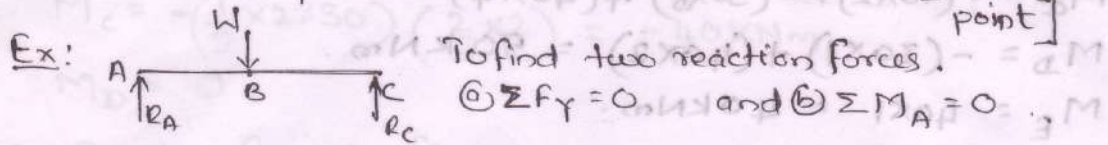 point]
Ex: W
A B C To find two reaction forces.
RA RC ⓐ ΣFy = 0 and ⓑ ΣM_A = 0 .,